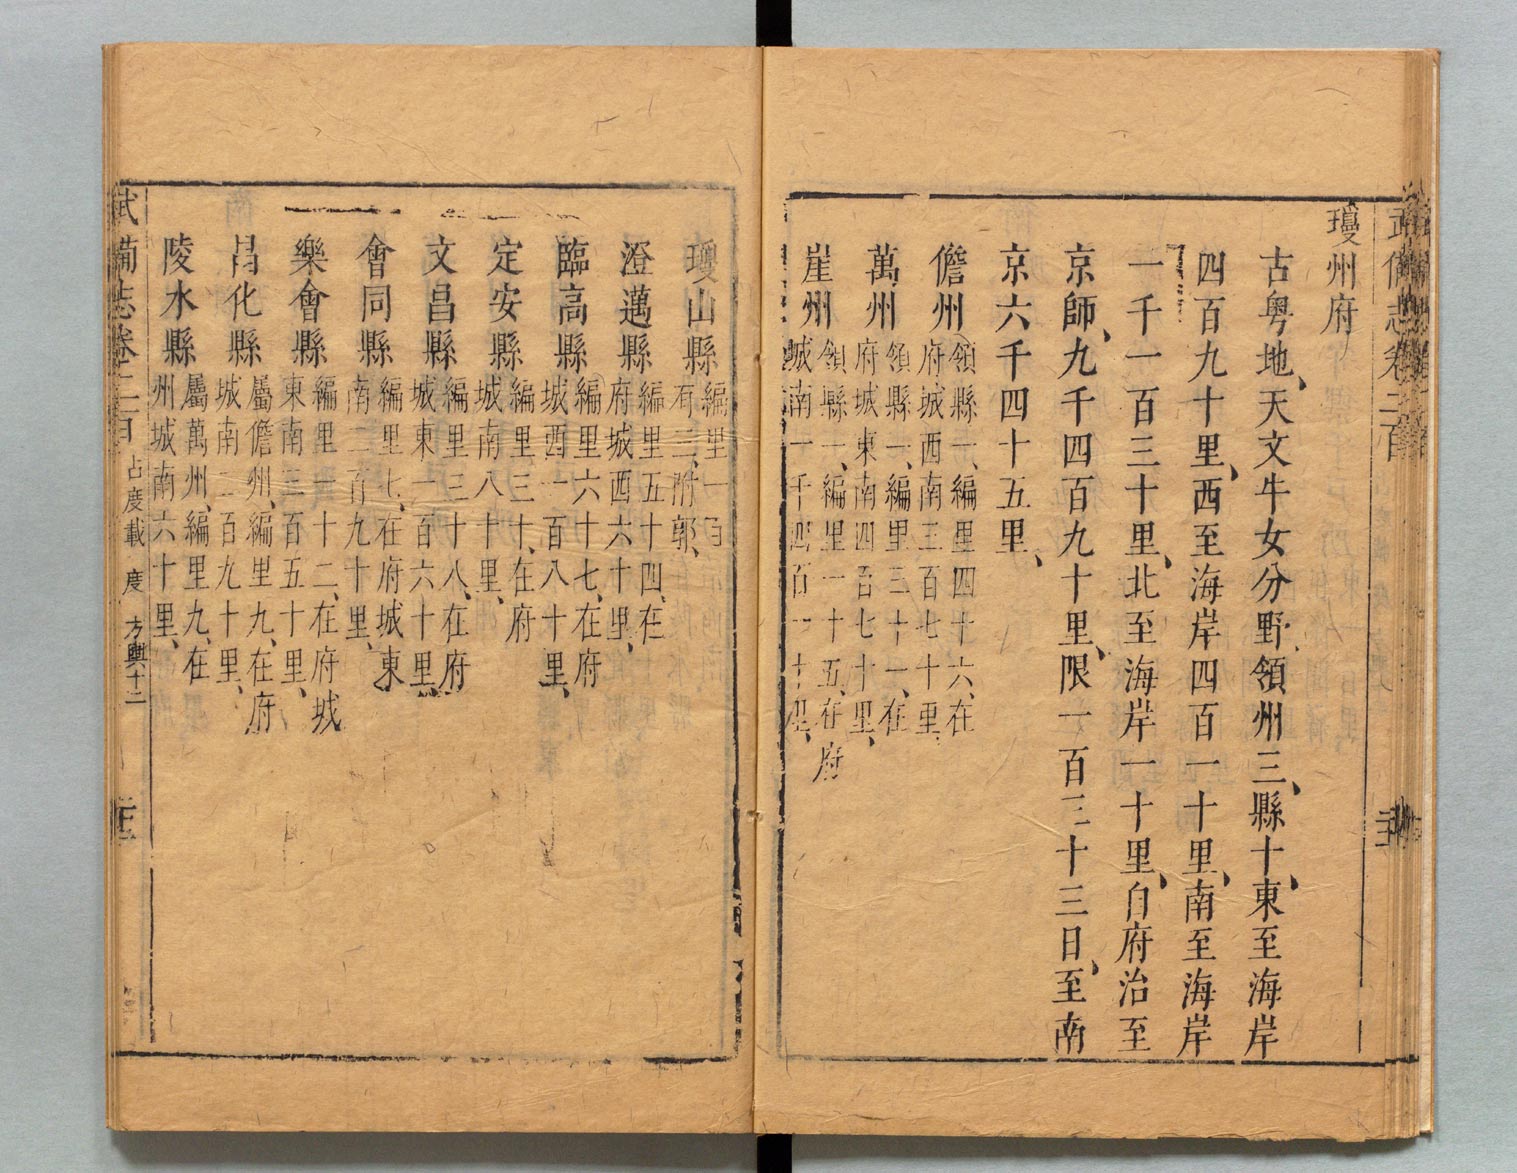 瓊州府
古粵地、天文牛女分野、領州三、縣十、東至海岸
四百九十里、西至海岸四百一十里、南至海岸
一千一百三十里、北至海岸一十里、自府治至
京師、九千四百九十里、限一百三十三日、至南
京六千四十五里、
儋州
領縣一、編里四十六、在
府城西南三百七十里、
萬州
領縣一、編里三十一、在
府城東南四百七十里、
崖州
領縣一、編里一十五、在府
城南一千四百一十里、
瓊山縣
編里一百
有三、附郭、
澄邁縣
編里五十四、在
府城西六十里、
臨高縣
編里六十七、在府
城西一百八十里、
定安縣
編里三十、在府
城南八十里、
文昌縣
編里三十八、在府
城東一百六十里、
會同縣
編里七、在府城東
南二百九十里、
樂會縣
編里一十二、在府城
東南三百五十里、
昌化縣
屬儋州、編里九、在府
城南二百九十里、
陵水縣
屬萬州、編里九、在
州城南六十里、
武備志卷二百 占度載 度 方輿十二